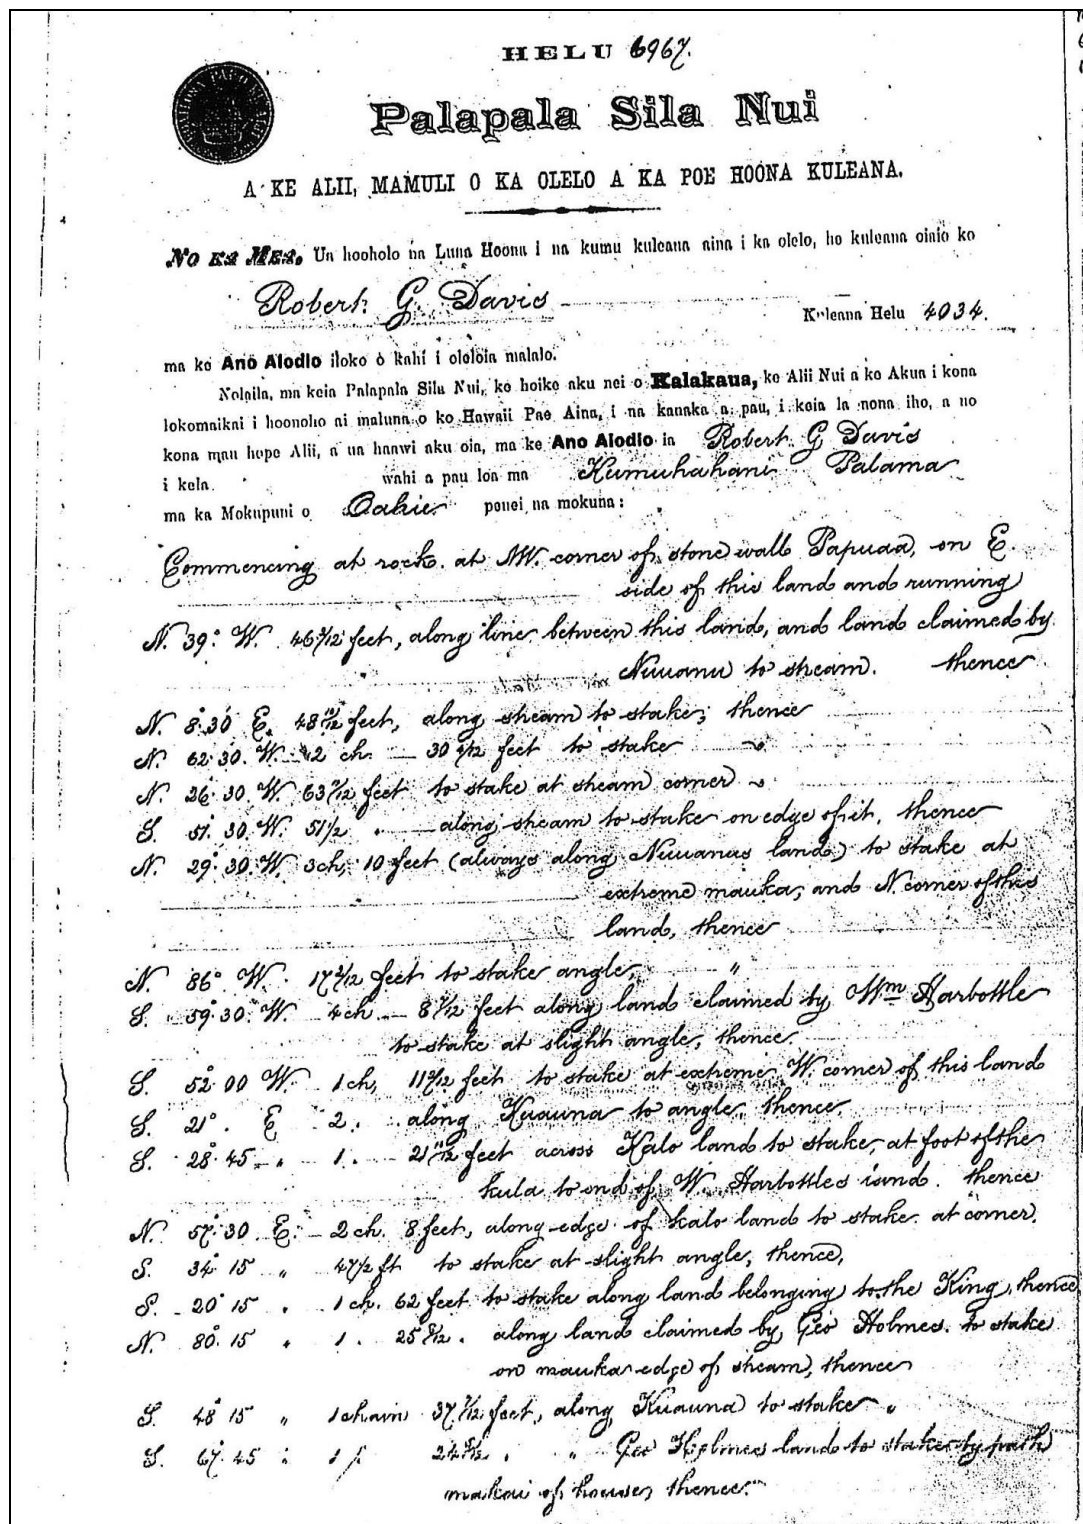 HELU 6967.
Palapala Sila Nui
A KE ALII, MAMULI O KA OLELO A KA POE HOONA KULEANA.
No ka Mea, Ua hooholo na Luna Hoona i na kumu kuleana aina i ka olelo, he kuleana oiaio ko
Robert G. Davis
Kuleana Helu 4034.
ma ke Ano Alodio iloko o kahi i oleloia malalo.
Nolaila, ma keia Palapala Sila Nui, ke hoike aku nei o Kalakaua, ke Alii Nui a ke Akua i kona
lokomaikai i hoonoho ai maluna o ko Hawaii Pae Aina, i na kanaka a pau, i keia la nona iho, a no
kona mau hope Alii, a ua haawi aku oia, ma ke Ano Alodio ia Robert G Davis
i kela wahi a pau loa ma Kumuhahani Palama
ma ka Mokupuni o Oahu penei na mokuna:
Commencing at rock at NW. corner of stone wall Papuaa, on E.
side of this land and running
N. 39° W. 46 feet, along line between this land, and land claimed by
Nuuanu to stream. thence
N. 8° 30' E. 48 10/12 feet, along stream to stake; thence
N. 62° 30' W. 2 ch. 30 feet to stake "
N. 36° 30' W. 63 feet to stake at stream corner "
S. 51° 30' W. 51 1/2 " along stream to stake on edge of it, thence
N. 29° 30' W. 3 ch, 10 feet (always along Nuuanus land) to stake at
extreme mauka, and N. corner of this
land, thence
N. 86° W. 17 feet to stake angle, "
S. 59° 30' W. 4 ch. 8 feet along land claimed by Wm Harbottle
to stake at slight angle, thence.
S. 52° 00 W. 1 ch, 11 feet to stake at extreme W. corner of this land
S. 21° E 2 . along Kuauna to angle, thence.
S. 28° 45 " 1 . 21 11/12 feet across Kalo land to stake, at foot of the
kula to end of W. Harbottles land. thence
N. 57° 30 E. 2 ch. 8 feet, along edge of kalo land to stake at corner.
S. 34° 15 " 47 1/2 ft to stake at slight angle, thence,
S. 20° 15 " 1 ch. 62 feet to stake along land belonging to the King, thence
N. 80° 15 " 1 . 25 8/12 . along land claimed by Geo Holmes. to stake
on mauka edge of stream, thence
S. 48° 15 " 1 chain 37 7/12 feet, along Kuauna to stake "
S. 67° 45 " 1 24 5/12 . " Geo Holmes land to stake by path
makai of houses, thence.